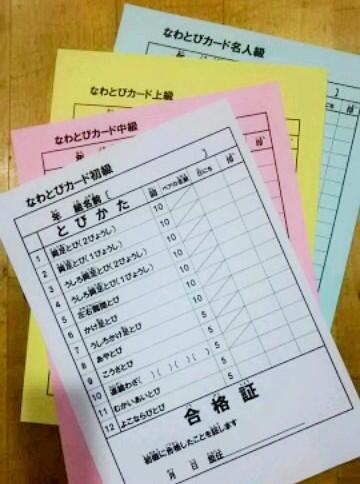 なわとびカード名人級
なわとびカード上級
なわとびカード中級
なわとびカード初級
年 組 名前（ ）
とびかた 回 ペアの名前 日にち
1 両足とび（2びょうし） 10
2 両足とび（1びょうし） 10
3 うしろ両足とび（2びょうし） 10
4 うしろ両足とび（1びょうし） 10
5 左右両側とび 10
6 かけ足とび 10
7 うしろかけ足とび 10
8 あやとび 5
9 こうさとび 5
10 連続わざ（ ）（ ）（ ）（ ）
11 むかいあいとび 5
12 よこならびとび 5
合格証
初級に合格したことを証します
月 日 担任